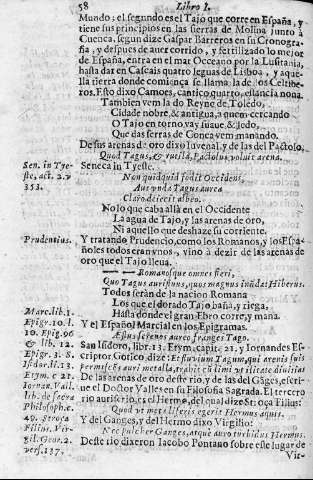 58 Libro I.
Mundo: el segundo es el Tajo que corre en España, y
tiene sus principios en las sierras de Molina junto à
Cuenca, segun dize Gaspar Barreros en su Cronogra-
fia, y despues de auer corrido, y fertilizado lo mejor
de España, entra en el mar Occeano por la Lusitania,
hasta dar en Cascais quatro leguas de Lisboa, y aque-
lla tierra donde comiança se llama la de los Celtibe-
ros. Esto dixo Camoes, cantico quarto, estancia nona.
Tambien vem la do Reyne de Toledo,
Cidade nobre, & antigua, a quem cercando
O Tajo en torno, vay suaue, & ledo,
Que das serras de Conca vem manando.
De sus arenas de oro dixo Iuuenal, y de las del Pactolo.
Quod Tagus, & rutila Pactolus voluit arena.
Sen. in Tye-
ste, act. 2. v
353.
Seneca in Tyeste.
Non quidquid fodit Occidens,
Aut vnda Tagus aurea
Claro deiecit albeo.
No lo que caba allà en el Occidente
La agua de Tajo, y las arenas de oro,
Ni aquello que deshaze su corriente.
Prudentius.
Y tratando Prudencio, como los Romanos, y los Espa-
ñoles todos eran vnos, vino à dezir de las arenas de
oro que el Tajo lleua.
Romanosque omnes fieri,
Quo Tagus aurifluus, quos magnus inũdat Hiberus.
Todos seràn de la nacion Romana
Los que el dorado Tajo baña, y riega,
Hasta donde el gran Ebro corre, y mana.
Marc. lib. 1.
Epigr. 10. l.
10. Epig. 96
& lib. 12.
Epigr. 3. S.
Isidor. li. 13
Etym. c. 21
Iornan. Vall.
lib. de sacra
Philosoph. c.
Filius. Vir-
gil. Geor. 2.
vers. 137.
Y el Español Marcial en los Epigramas.
San Isidoro, libr. 13. Etym. capit. 21. y Iornandes Es-
criptor Gotico, dize: Et fluvium Tagum, qui arenis suis
permiscẽs auri metalla, trahit cũ limi vtilitate diuitias
De las arenas de oro deste rio, y de las del Gãges, escri-
ue el Doctor Valles en su Filosofia Sagrada. El tercero
rio aurifero, es el Hermo, del qual dize
Y del Ganges, y del Hermo dixo Virgilio:
Nec pulcher Ganges, atque auro turbidus Hermus.
Deste rio dixeron Iacobo Pontano sobre este lugar de
Vir-